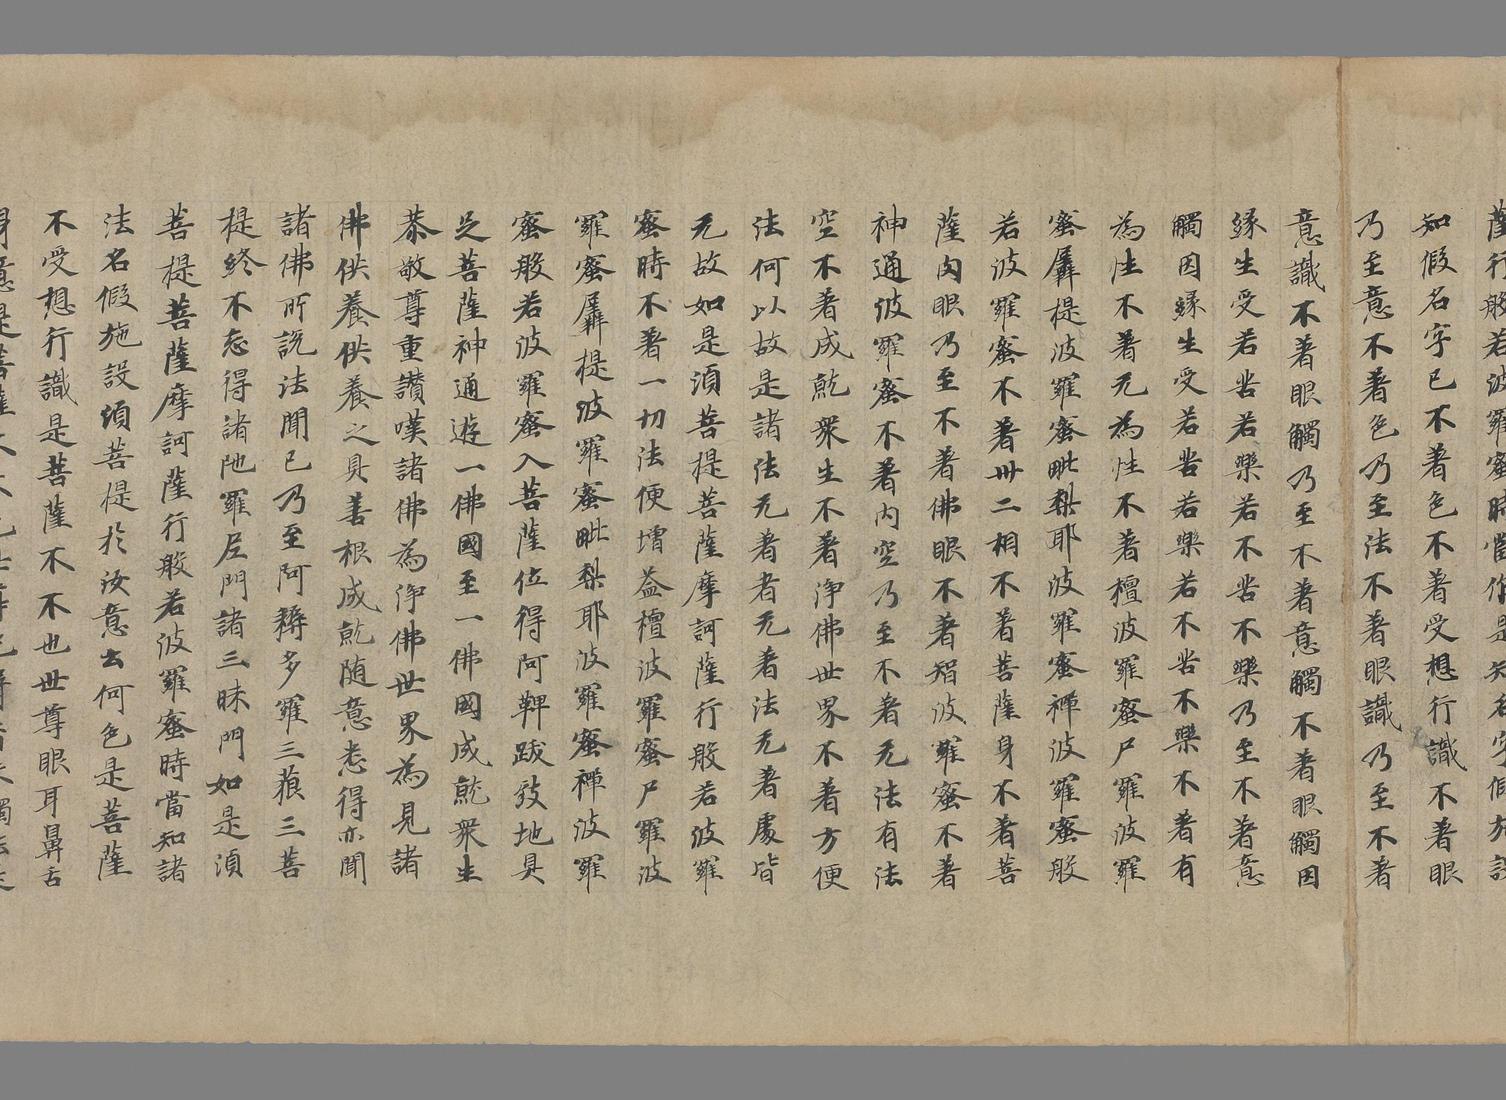 薩行般若波羅蜜時當作是知名字假施設
知假名字已不著色不著受想行識不著眼
乃至意不著色乃至法不著眼識乃至不著
意識不著眼觸乃至不著意觸不著眼觸因
緣生受若苦若樂若不苦不樂乃至不著意
觸因緣生受若苦若樂若不苦不樂不著有
為性不著无為性不著檀波羅蜜尸羅波羅
蜜羼提波羅蜜毗梨耶波羅蜜禪波羅蜜般
若波羅蜜不著卅二相不著菩薩身不著菩
薩肉眼乃至不著佛眼不著智波羅蜜不著
神通波羅蜜不著內空乃至不著无法有法
空不著成就衆生不著淨佛世界不著方便
法何以故是諸法无著者无著法无著處皆
无故如是須菩提菩薩摩訶薩行般若波羅
蜜時不著一切法便增益檀波羅蜜尸羅波
羅蜜羼提波羅蜜毗梨耶波羅蜜禪波羅
蜜般若波羅蜜入菩薩位得阿鞞跋致地具
足菩薩神通遊一佛國至一佛國成就衆生
恭敬尊重讚嘆諸佛為淨佛世界為見諸
佛供養供養之具善根成就随意悉得亦聞
諸佛所說法聞已乃至阿耨多羅三藐三菩
提終不忘得諸陁羅尼門諸三昧門如是須
菩提菩薩摩訶薩行般若波羅蜜時當知諸
法名假施設須菩提於汝意云何色是菩薩
不受想行識是菩薩不不也世尊眼耳鼻舌
身意是菩薩不不也世尊色聲香味觸法是